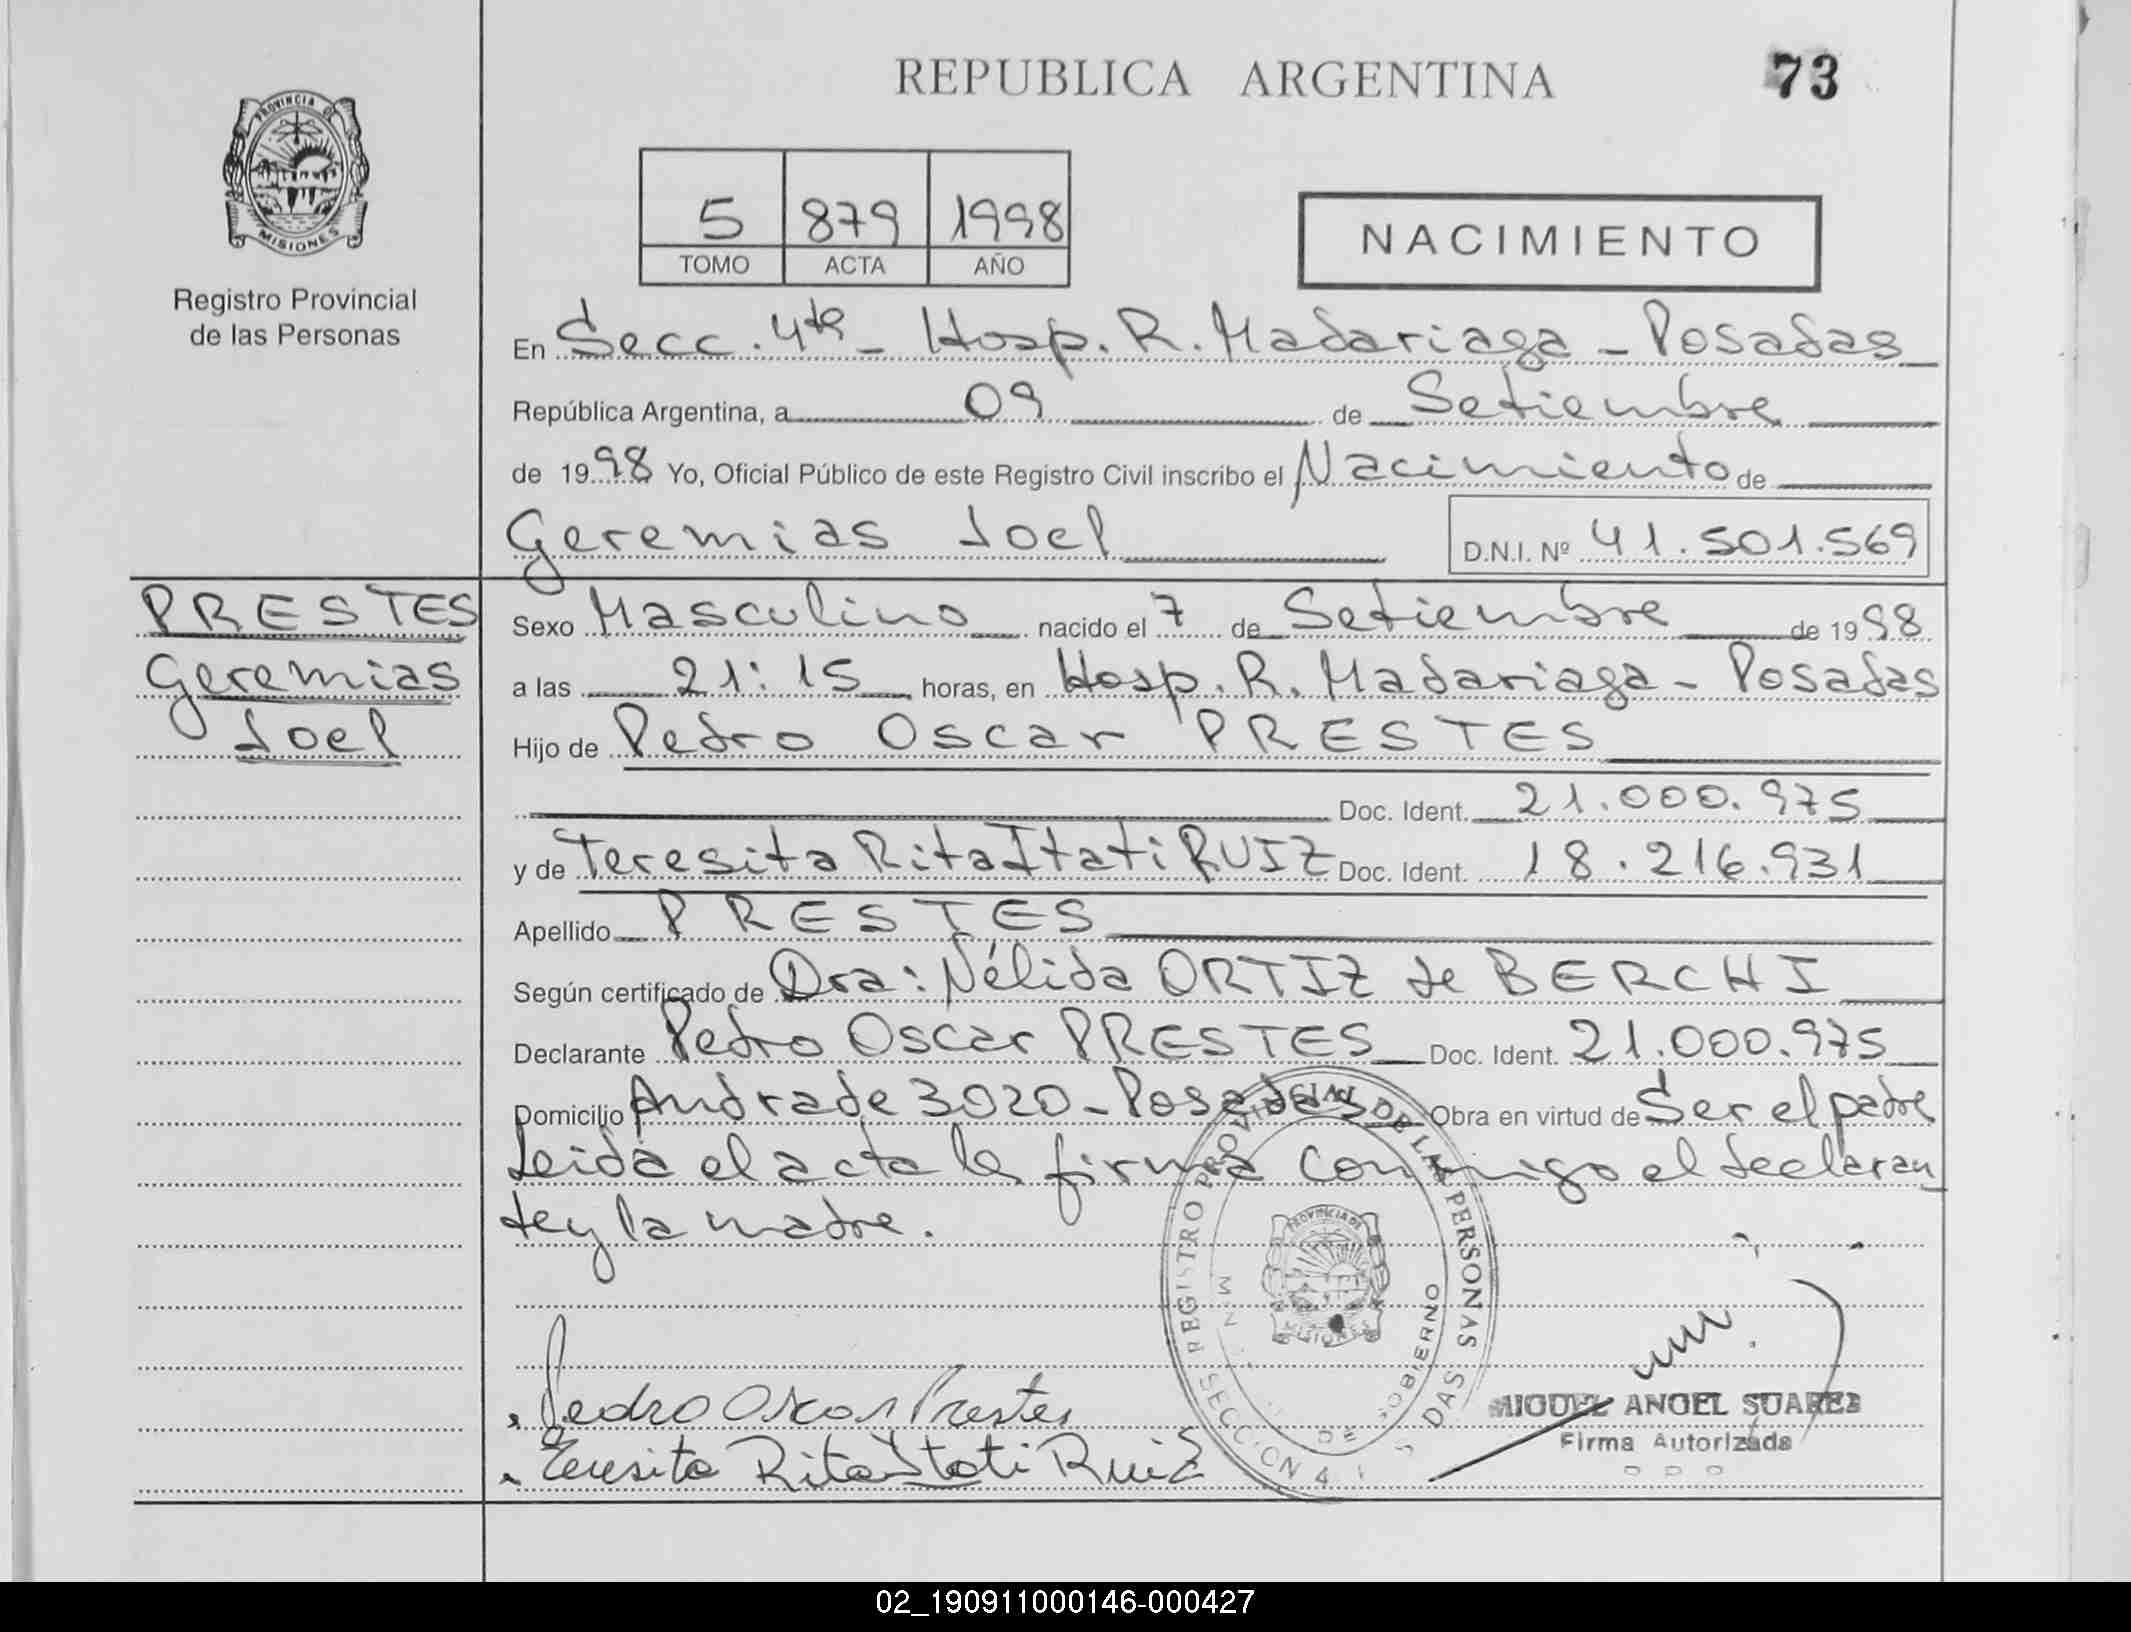 REPUBLICA ARGENTINA
73
PROVINCIA DE
MISIONES
Registro Provincial
de las Personas
5 879 1998
TOMO ACTA AÑO
NACIMIENTO
En Secc. 4ta - Hosp. R. Madariaga - Posadas
República Argentina, a 09 de Setiembre
de 1998 Yo, Oficial Público de este Registro Civil inscribo el Nacimiento de
Geremias Joel D.N.I. Nº 41.501.569
PRESTES
Geremias
Joel
Sexo Masculino nacido el 7 de Setiembre de 1998
a las 21:15 horas, en Hosp. R. Madariaga - Posadas
Hijo de Pedro Oscar PRESTES
Doc. Ident. 21.000.975
y de Teresita Rita Itati RUIZ Doc. Ident. 18.216.931
Apellido PRESTES
Según certificado de Dra: Nélida ORTIZ de BERCHI
Declarante Pedro Oscar PRESTES Doc. Ident. 21.000.975
Domicilio Andrade 3020 - Posadas Obra en virtud de Ser el padre
Leida el acta la firma conmigo el declaran
te y la madre.
REGISTRO PROVINCIAL DE LAS PERSONAS
PROVINCIA DE
MISIONES
DE GOBIERNO
SECCION 4
POSADAS
Pedro Oscar Prestes
Teresita Rita Itati Ruiz
MIGUEL ANGEL SUAREZ
Firma Autorizada
02_190911000146-000427